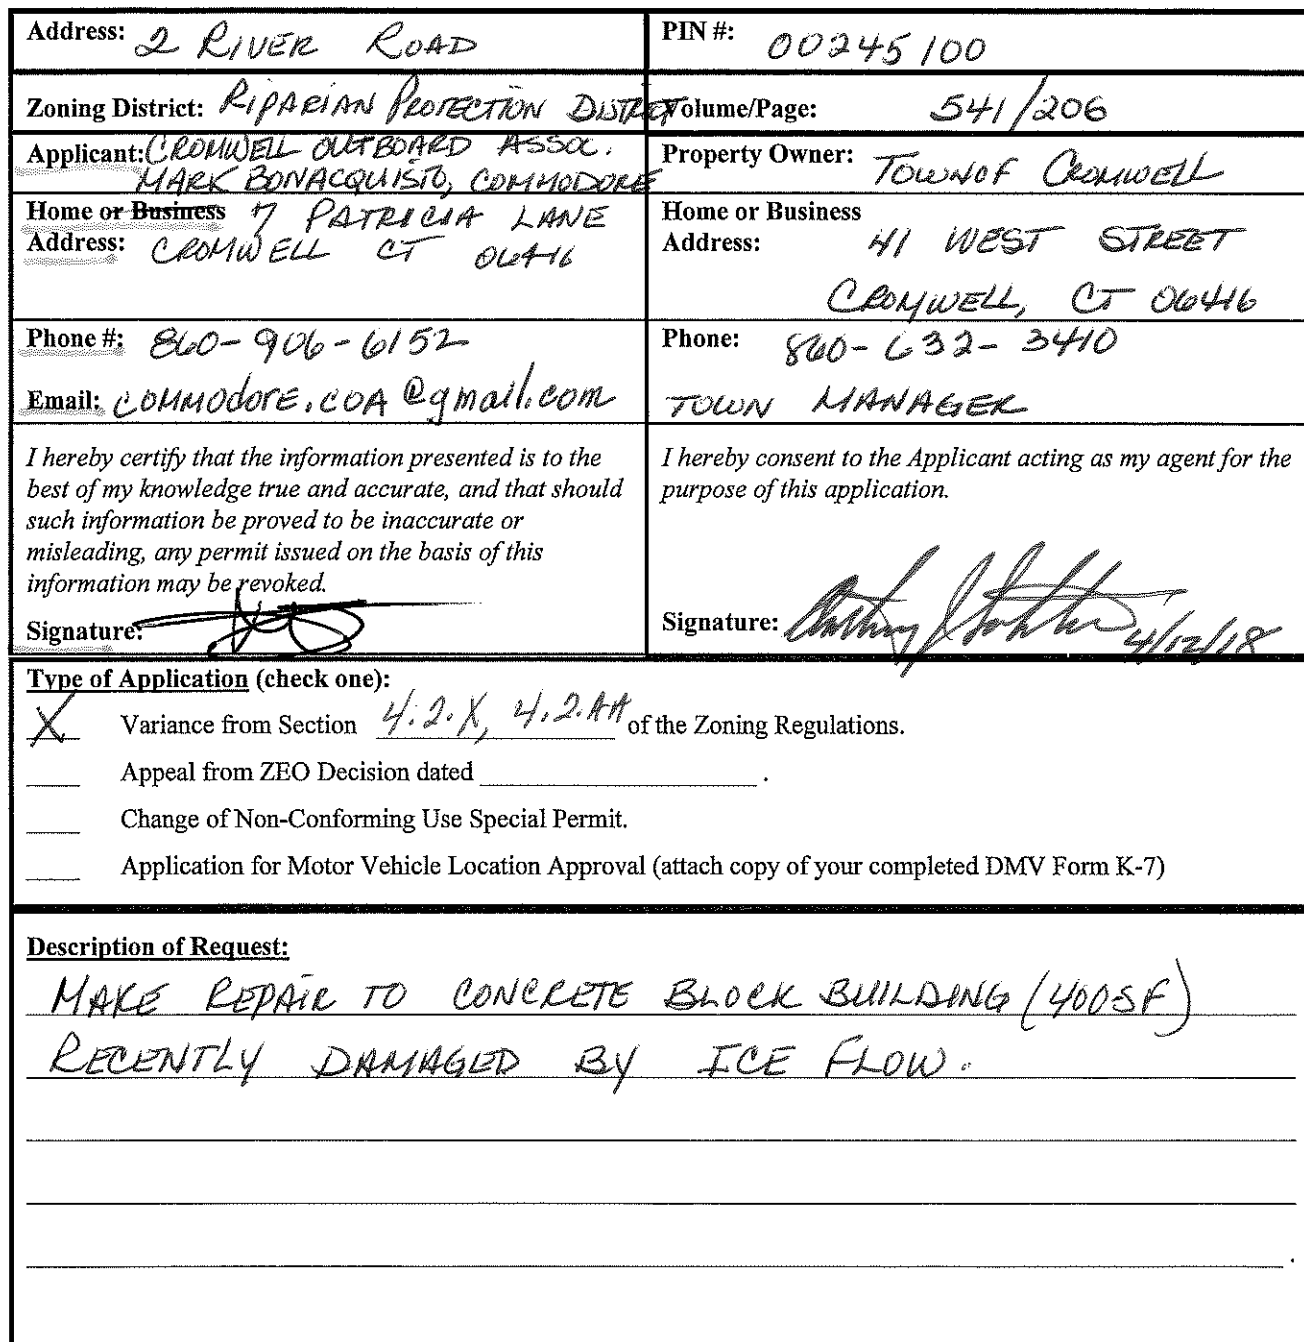 Address: 2 RIVER ROAD
PIN #: 00245100
Zoning District: RIPARIAN PROTECTION DISTRICT
Volume/Page: 541/206
Applicant: CROMWELL OUTBOARD ASSOC.
MARK BONACQUISTO, COMMODORE
Property Owner: TOWN OF CROMWELL
Home or Business 7 PATRICIA LANE
Address: CROMWELL CT 06416
Home or Business
Address: 41 WEST STREET
CROMWELL, CT 06416
Phone #: 860-906-6152
Email: COMMODORE.COA@gmail.com
Phone: 860-632-3410
TOWN MANAGER
I hereby certify that the information presented is to the
best of my knowledge true and accurate, and that should
such information be proved to be inaccurate or
misleading, any permit issued on the basis of this
information may be revoked.
Signature:
I hereby consent to the Applicant acting as my agent for the
purpose of this application.
Signature: Anthony J 4/12/18
Type of Application (check one):
X Variance from Section 4.2.X, 4.2.AA of the Zoning Regulations.
Appeal from ZEO Decision dated .
Change of Non-Conforming Use Special Permit.
Application for Motor Vehicle Location Approval (attach copy of your completed DMV Form K-7)
Description of Request:
MAKE REPAIR TO CONCRETE BLOCK BUILDING (400SF)
RECENTLY DAMAGED BY ICE FLOW.